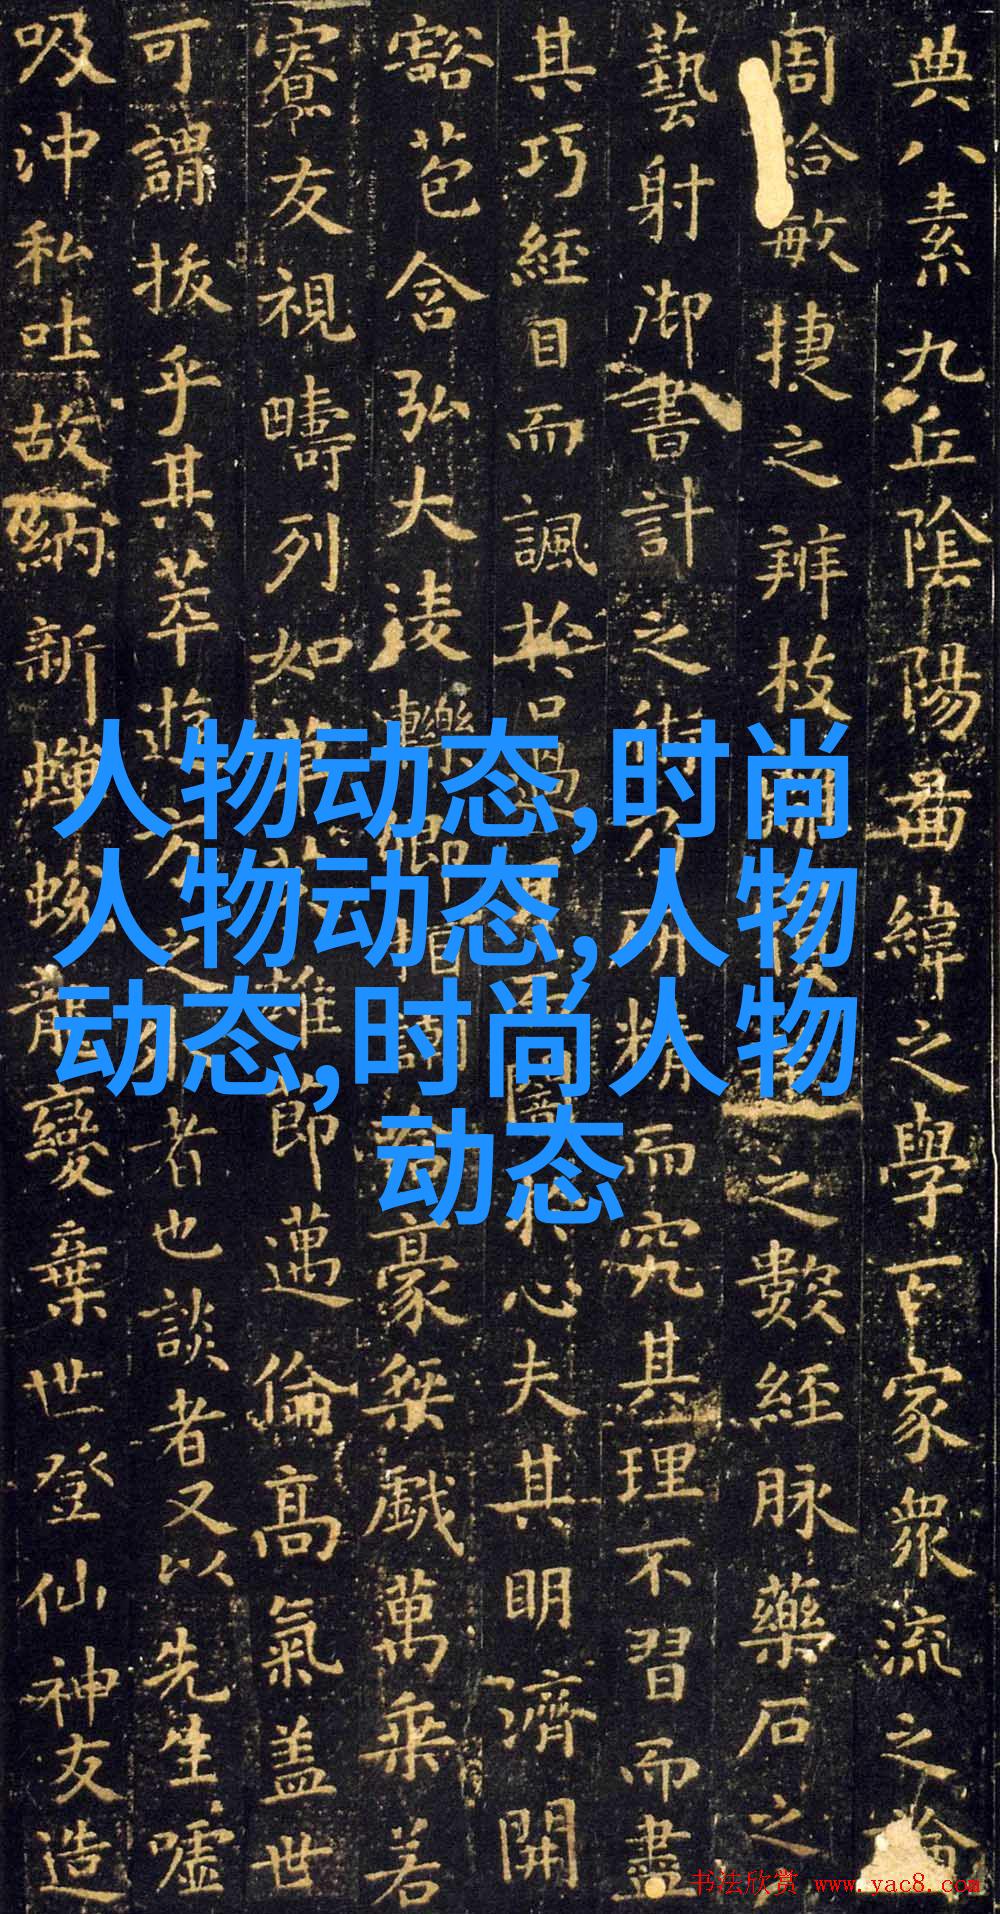 人物动态,时尚
人物动态,人物
动态,时尚人物
动态
典八素九丘陰陽啚緯之學百家眾流之論
周給敏捷之辨枝之數經脉藥石之
藝射御書計之術乃研精而究其理不習而盡
其巧經目而諷於口過於心夫其明濟開
豁苞含弘大淩轢卿豪桀戲萬乘若
寮友視疇列如草雄節邁倫高氣盖世
可謂拔乎其萃遊方之者也談者又以先生噓
吸沖和吐故納新蟬蛻龍變棄世登仙神友造
书法欣赏 www.yac8.com